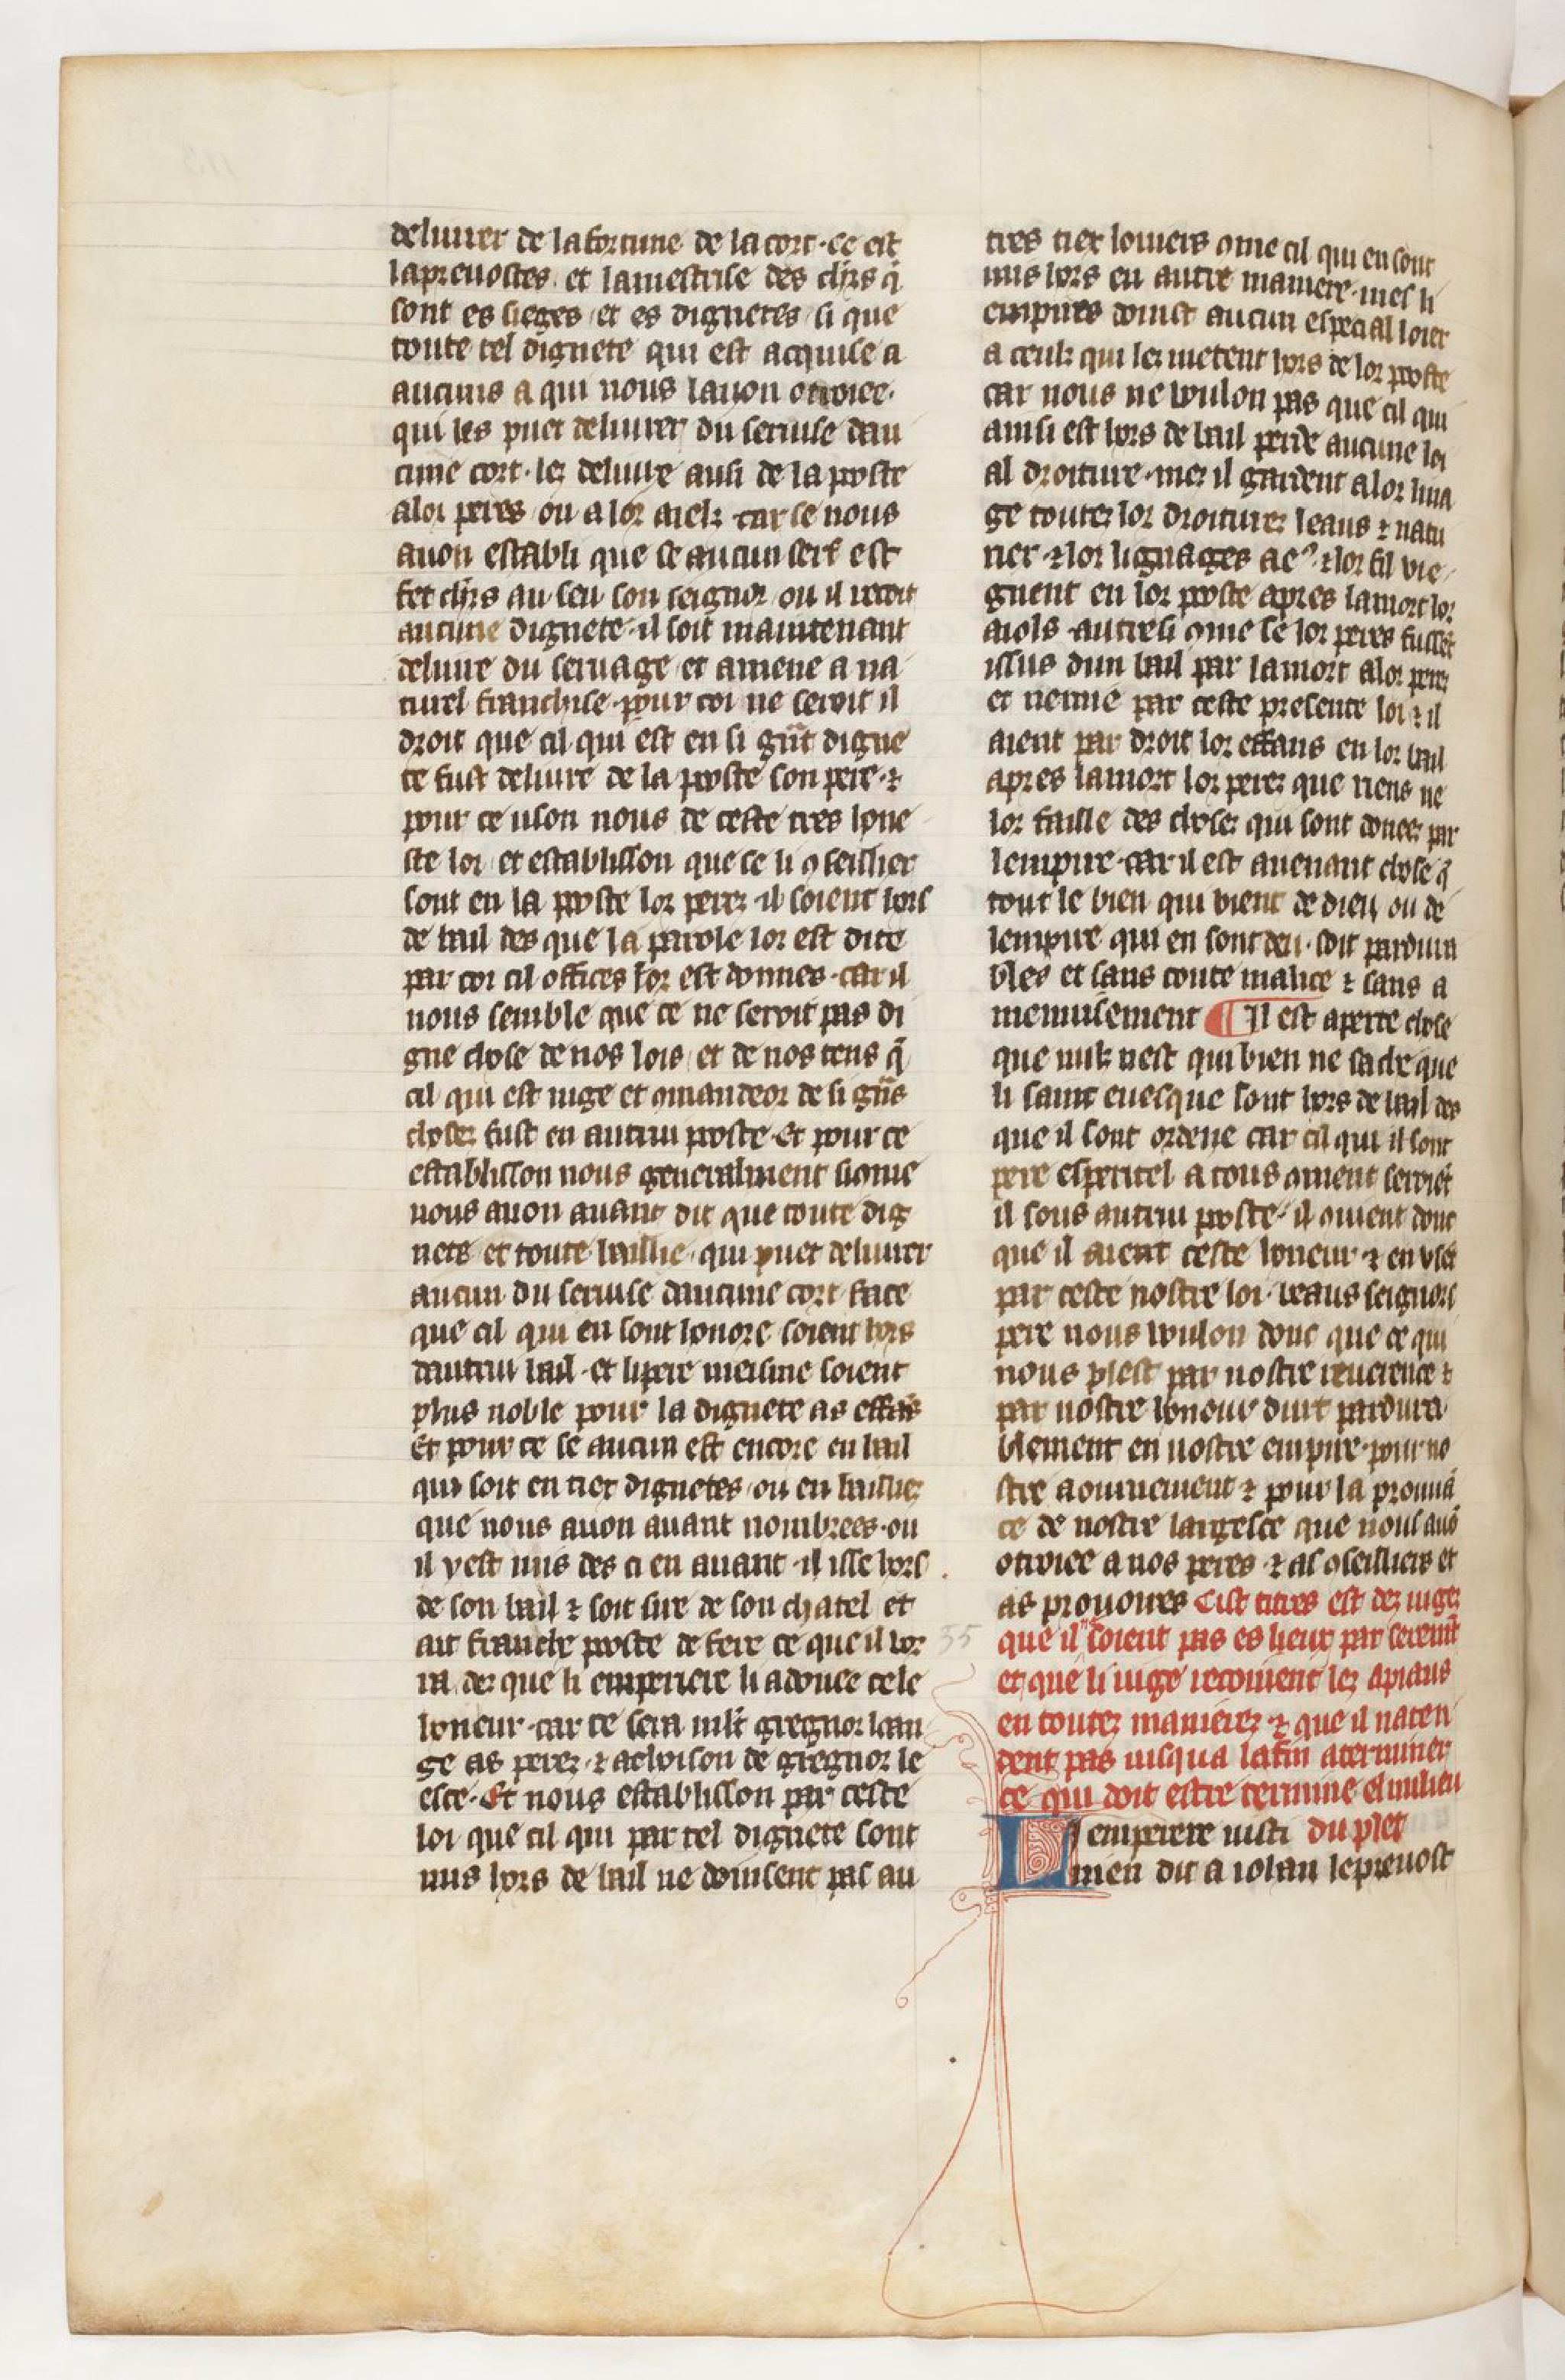 deliurer de la fortune de la cort · ce est
la preuostes et la mestrise des clr̄s q̄
sont es sieges et es dignetes si que
toute tel dignete qui est acquise a
aucuns a qui nous lauon otroiee ·
qui les puet deliurer du seruise dau
cune cort · lez deliure ausi de la poste
a lor peres ou a lor aielz · car se nous
auon establi que se aucun serf est
fet clr̄s au seu son seignor ou il recoit
aucune dignete · il soit maintenant
deliure du seruage et amene a na
turel franchise · pour coi ne seroit il
droit que cil qui est en si gr̄nt digne
te fust deliure de la poste son pere · ⁊
pour ce uson nous de ceste tres hone
ste loi et establisson que se li ꝯseillier
sont en la poste lor perez il soient hors
de bail des que la parole lor est dite
par coi cil offices lor est donnes · car il
nous semble que ce ne seroit pas di
gne chose de nos lois et de nos tens q̄
cil qui est iuge et ꝯmandeor de si gr̄ns
chosez fust en autrui poste · Et pour ce
establisson nous generalment si ꝯme
nous auon auant dit que toute dig
nete et toute baillie qui puet deliurer
aucun du seruise daucune cort face
que cil qui en sont honore soient hors
dautrui bail · et li pere meisme soient
plus noble pour la dignete as effās
Et pour ce se aucun est encore en bail
qui soit en tiex dignetes ou en bailliez
que nous auon auant nombrees · ou
il y est mis des ci en auant · il isse hors
de son bail ⁊ soit sire de son chatel et
ait franche poste de fere ce que il vor
ra dez que li emperiere li a donee cele
honeur · car ce sera ml̄t gregnor loan
ge as perez · ⁊ achoison de gregnor le
esce · Et nous establisson par ceste
loi que cil qui par tel dignete sont
mis hors de bail ne doiuent pas au
tres tiex loiuers ꝯme cil qui en sont
mis hors en autre maniere · mes li
empires doinst aucun especial loier
a ceulz qui les metent hors de lor poste
car nous ne voulon pas que cil qui
ainsi est hors de bail perde aucune loi
al droiture · mez il gardent a lor lina
ge toutez lor droiturez leaus ⁊ natu
riex · ⁊ lor lignages ⁊ lor fil vie
gnent en lor poste apres la mort lor
aiols · autresi ꝯme se lor peres fussēt
issus dun bail par la mort a lor perez
et nenne par ceste presente loi ⁊ il
aient par droit lor effans en lor bail
apres la mort lor perez que riens ne
lor faille des chosez qui sont doneez par
lempire · car il est auenant chose q̄
tout le bien qui vient de dieu ou de
lempire qui en sont deu · soit pardura
bles et sans toute malice ⁊ sans a
menuisement ¶ Il est aperte chose
que nulz nest qui bien ne sache que
li saint euesque sont hors de bail des
que il sont ordene car cil qui il sont
pere esperitel a tous ꝯment seroiēt
il sous autrui poste · il ꝯuient donc
que il aient ceste honeur ⁊ en vsēt
par ceste nostre loi · beaus seignors
pere nous voulon donc que ce qui
nous plest par nostre reuerence ⁊
par nostre honour durt pardura
blement en nostre empire · pour no
stre aournement ⁊ pour la prouuā
ce de nostre largesce que nous auō
otroiee a nos peres · ⁊ as ꝯseilliers et
as prouoires Cist titres est dez iugez
que il ne soient pas es lieuz par seremēt
et que li iuge recoiuent lez apiaus
en toutez manierez ⁊ que il naten
dent pas iusqua la fin a terminer
ce qui doit estre termine el milieu
Lemperere iusti du plet
nien dit a iohan le preuost